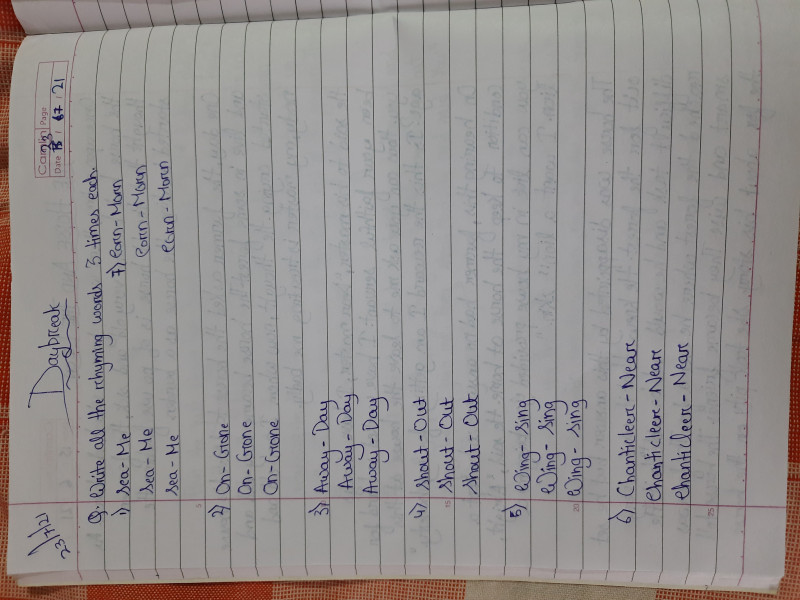 Camlin Page
Date 23 / 07 / 21
23/7/21
Daybreak
Q. Write all the rhyming words 3 times each.
1) Sea - Me
Sea - Me
Sea - Me
2) On - Gone
On - Gone
On - Gone
3) Away - Day
Away - Day
Away - Day
4) Shout - Out
Shout - Out
Shout - Out
5) Wing - Sing
Wing - Sing
Wing - Sing
6) Chanticleer - Near
Chanticleer - Near
Chanticleer - Near
7) Corn - Morn
Corn - Morn
Corn - Morn
5
15
20
25